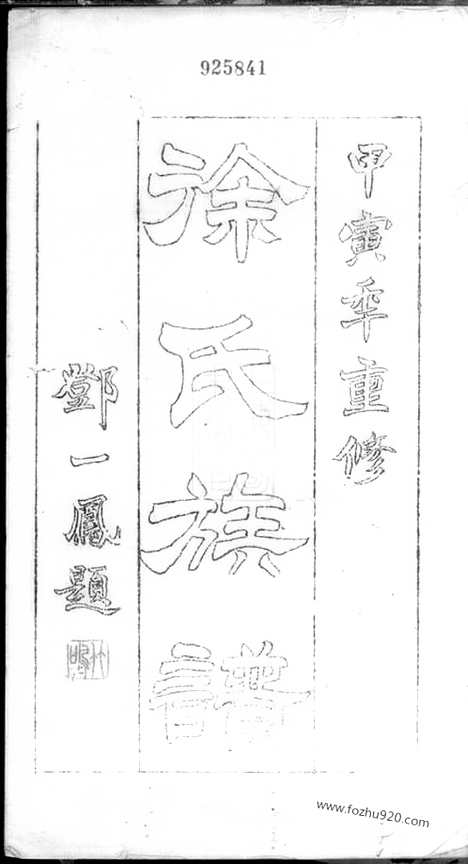 925841
甲寅年重修
徐氏族譜
鄧一鳳題
www.fozhu920.com